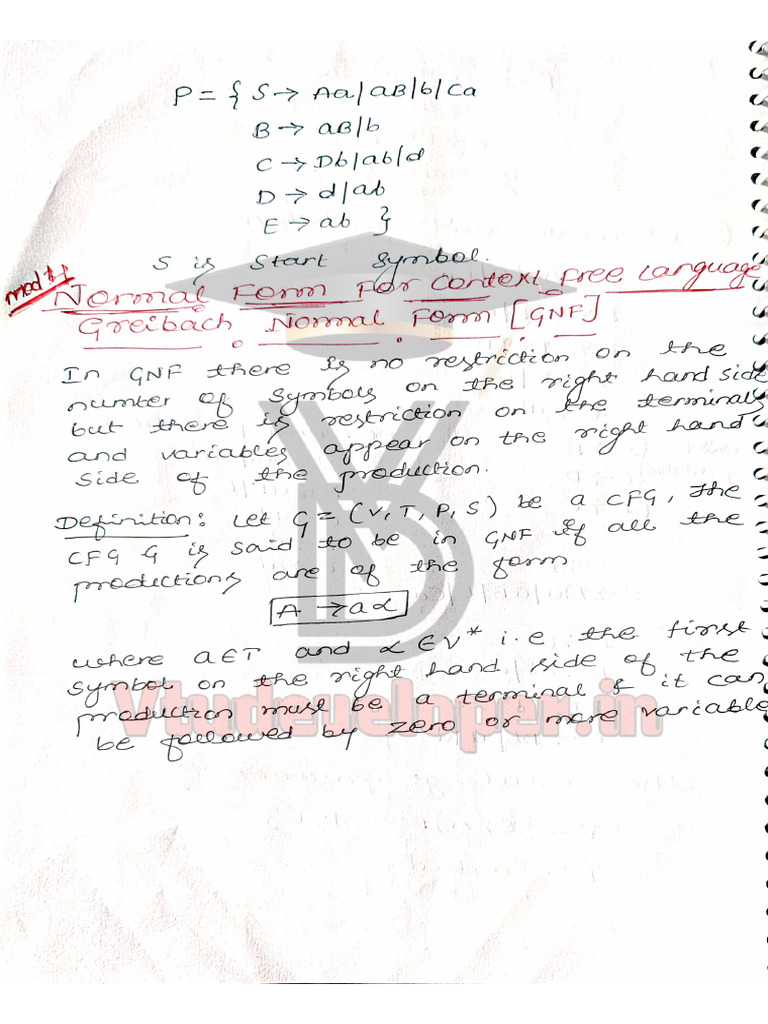 P = { S → Aa/aB/b/Ca
B → aB/b
C → Db/ab/d
D → d/ab
E → ab }
S is start symbol.
mod 4
Normal Form For Context Free Language
Greibach Normal Form [GNF]
In GNF there is no restriction on the
number of symbols on the right hand side
but there is restriction on the terminals
and variables appear on the right hand
side of the production.
Definition: Let G = (V, T, P, S) be a CFG, The
CFG G is said to be in GNF if all the
productions are of the form
A → aα
where a∈T and α∈V* i.e the first
symbol on the right hand side of the
production must be a terminal & it can
be followed by zero or more variable
Vtudeveloper.in